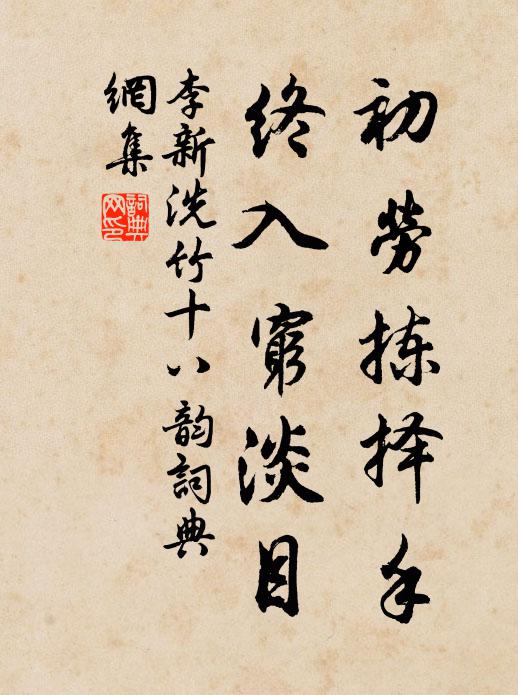 初劳拣择手
終入窮淡目
李新洗竹十八韵詞典
網集
詞典
网印